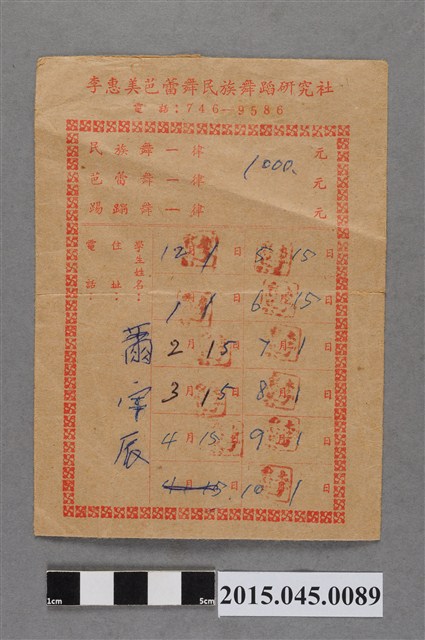 李惠美芭蕾舞民族舞蹈研究社
電話：746－9586
民族舞一律 1000. 元
芭蕾舞一律 元
踢躂舞一律 元
學生姓名：
住址：
電話：
12月1日 5月15日
1月1日 6月15日
2月15日 7月1日
3月15日 8月1日
4月15日 9月1日
4月15日 10月1日
1cm 5cm
2015.045.0089